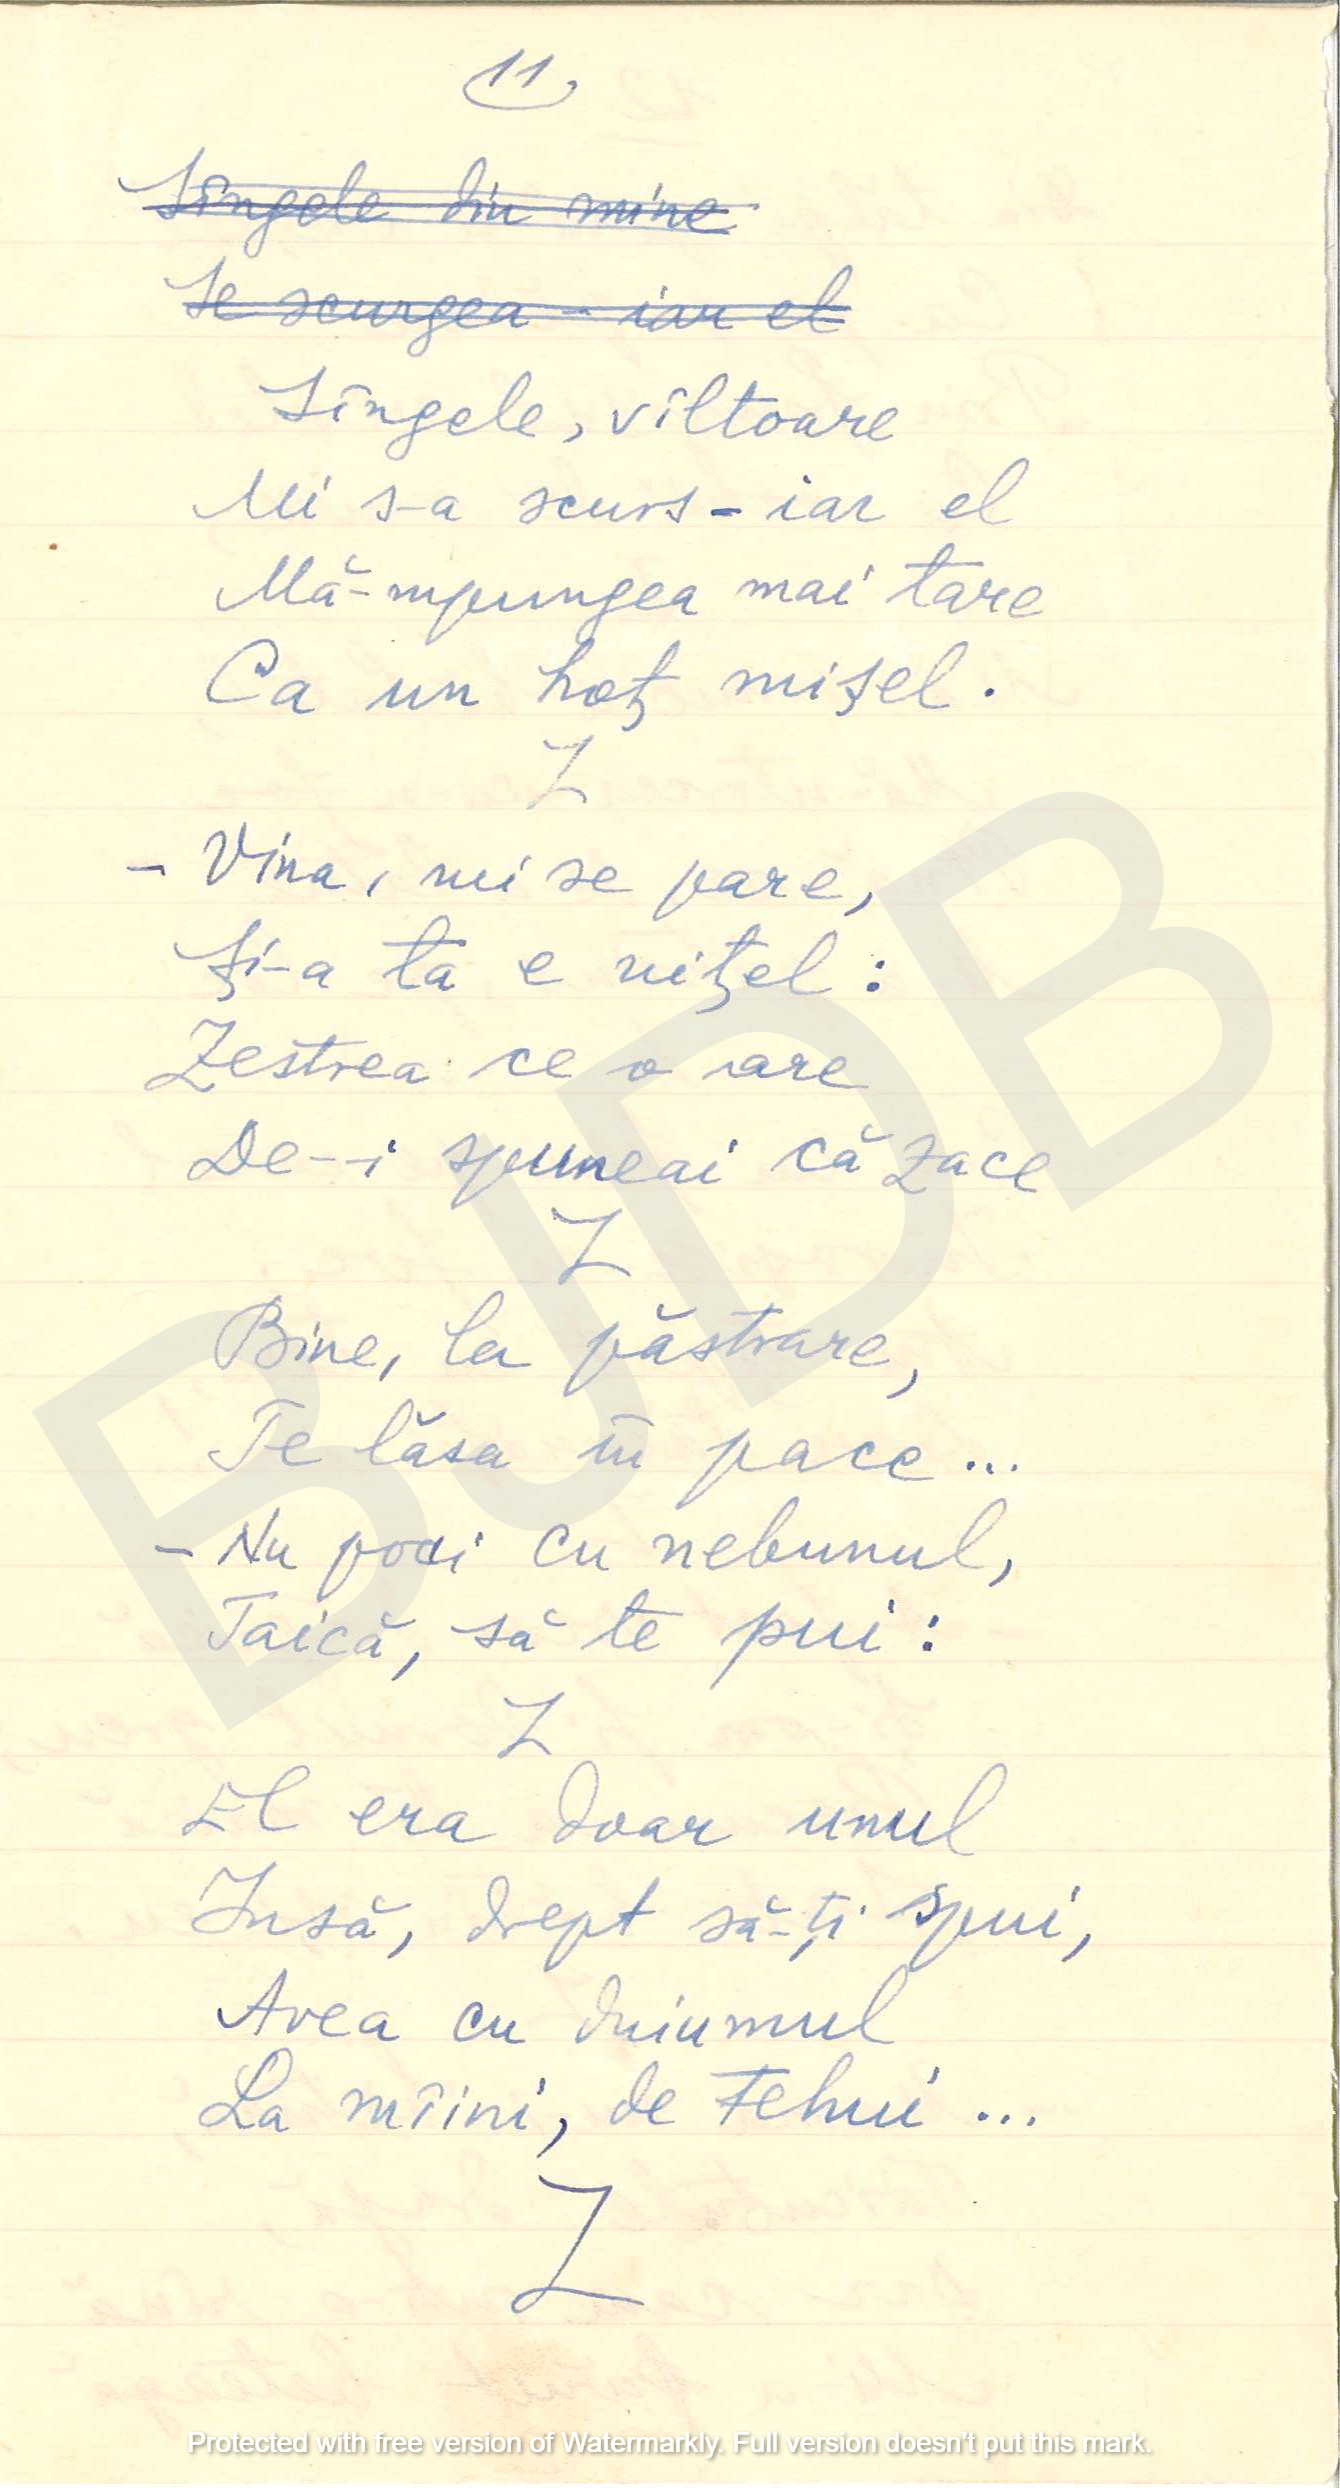 11.
Sîngele din mine
Se scurgea - iar el
Sîngele, vîltoare
Mi s-a scurs - iar el
Mă-mpungea mai tare
Ca un hoţ mişel.
Z
- Vina, mi se pare,
Şi-a ta e niţel:
Zestrea ce o are
De-i spuneai că zace
Z
Bine, la păstrare,
Te lăsa în pace...
- Nu poţi cu nebunul,
Taică, să te pui:
Z
El era doar unul
Însă, drept să-ţi spui,
Avea cu duiumul
La mîini, de felul ...
Z
BJDB
Protected with free version of Watermarkly. Full version doesn't put this mark.